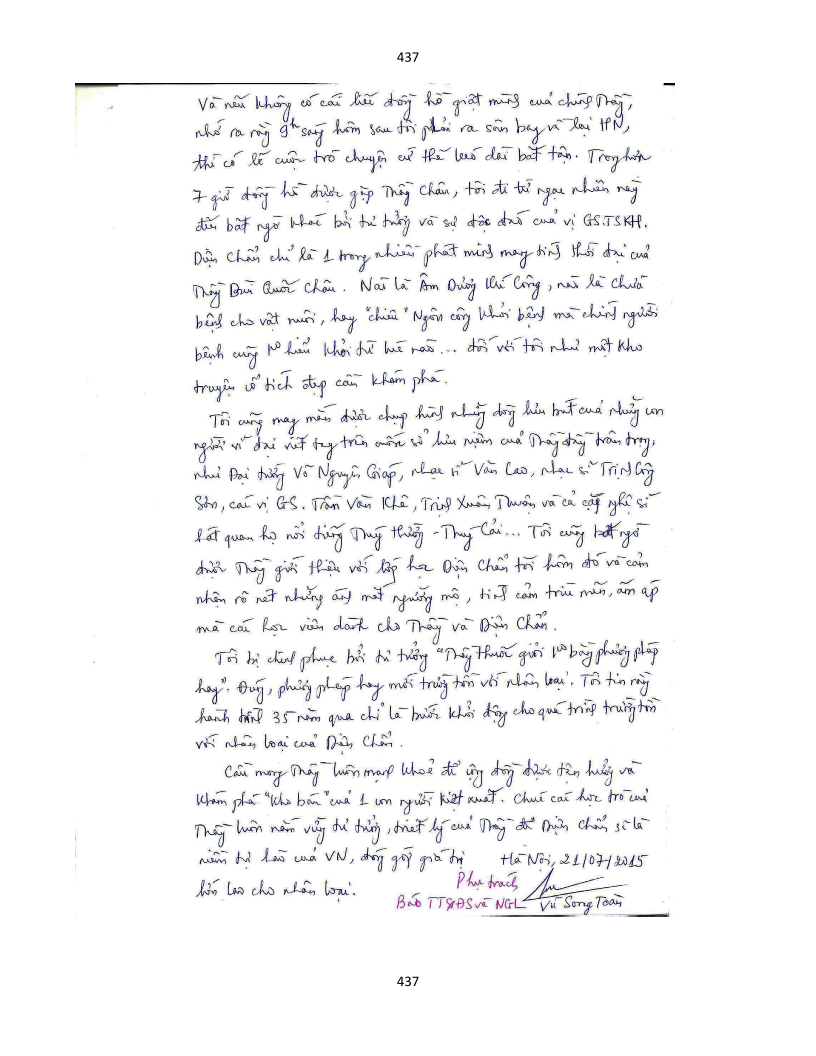 437
Và nếu không có cái liếc đồng hồ giật mình của chính Thầy,
nhớ ra rằng 9h sáng hôm sau tôi phải ra sân bay về lại HN,
thì có lẽ cuộc trò chuyện cứ thế kéo dài bất tận. Trong hơn
7 giờ đồng hồ được gặp Thầy Châu, tôi đi từ ngạc nhiên này
đến bất ngờ khác bởi tư tưởng và sự độc đáo của vị GS.TSKH.
Diện Chẩn chỉ là 1 trong nhiều phát minh mang tính thời đại của
Thầy Bùi Quốc Châu. Nào là Âm Dương Khí Công, nào là chữa
bệnh cho vật nuôi, hay "chiêu" Ngôn công khỏi bệnh mà chính người
bệnh cũng ko hiểu khỏi từ khi nào... đối với tôi như một kho
truyện cổ tích đẹp cần khám phá.
Tôi cũng may mắn được chụp hình những dòng lưu bút của những con
người vĩ đại viết tay trên cuốn sổ lưu niệm của Thầy đầy trân trọng,
như Đại tướng Võ Nguyên Giáp, nhạc sĩ Văn Cao, nhạc sĩ Trịnh Công
Sơn, các vị GS. Trần Văn Khê, Trịnh Xuân Thuận và cả cặp nghệ sĩ
hát quan họ nổi tiếng Thuý Hường - Thuý Cải... Tôi cũng bất ngờ
được Thầy giới thiệu với lớp học Diện Chẩn tối hôm đó và cảm
nhận rõ nét những ánh mắt ngưỡng mộ, tình cảm trìu mến, ấm áp
mà các học viên dành cho Thầy và Diện Chẩn.
Tôi bị chinh phục bởi tư tưởng "Thầy thuốc giỏi ko bằng phương pháp
hay". Đúng, phương pháp hay mới trường tồn với nhân loại. Tôi tin rằng
hành trình 35 năm qua chỉ là bước khởi động cho quá trình trường tồn
với nhân loại của Diện Chẩn.
Cầu mong Thầy luôn mạnh khoẻ để cộng đồng được tận hưởng và
khám phá "kho báu" của 1 con người kiệt xuất. Chúc các học trò của
Thầy luôn nắm vững tư tưởng, triết lý của Thầy để Diện Chẩn sẽ là
niềm tự hào của VN, đóng góp giá trị Hà Nội, 21/07/2015
lớn lao cho nhân loại. Phụ trách
Báo TT&ĐS và NGL Vũ Song Toàn
437